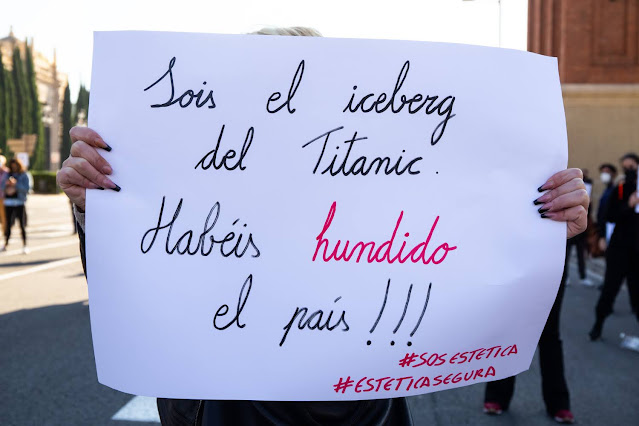 Sois el iceberg
del Titanic.
Habéis hundido
el país!!!
#SOS ESTETICA
#ESTETICASEGURA